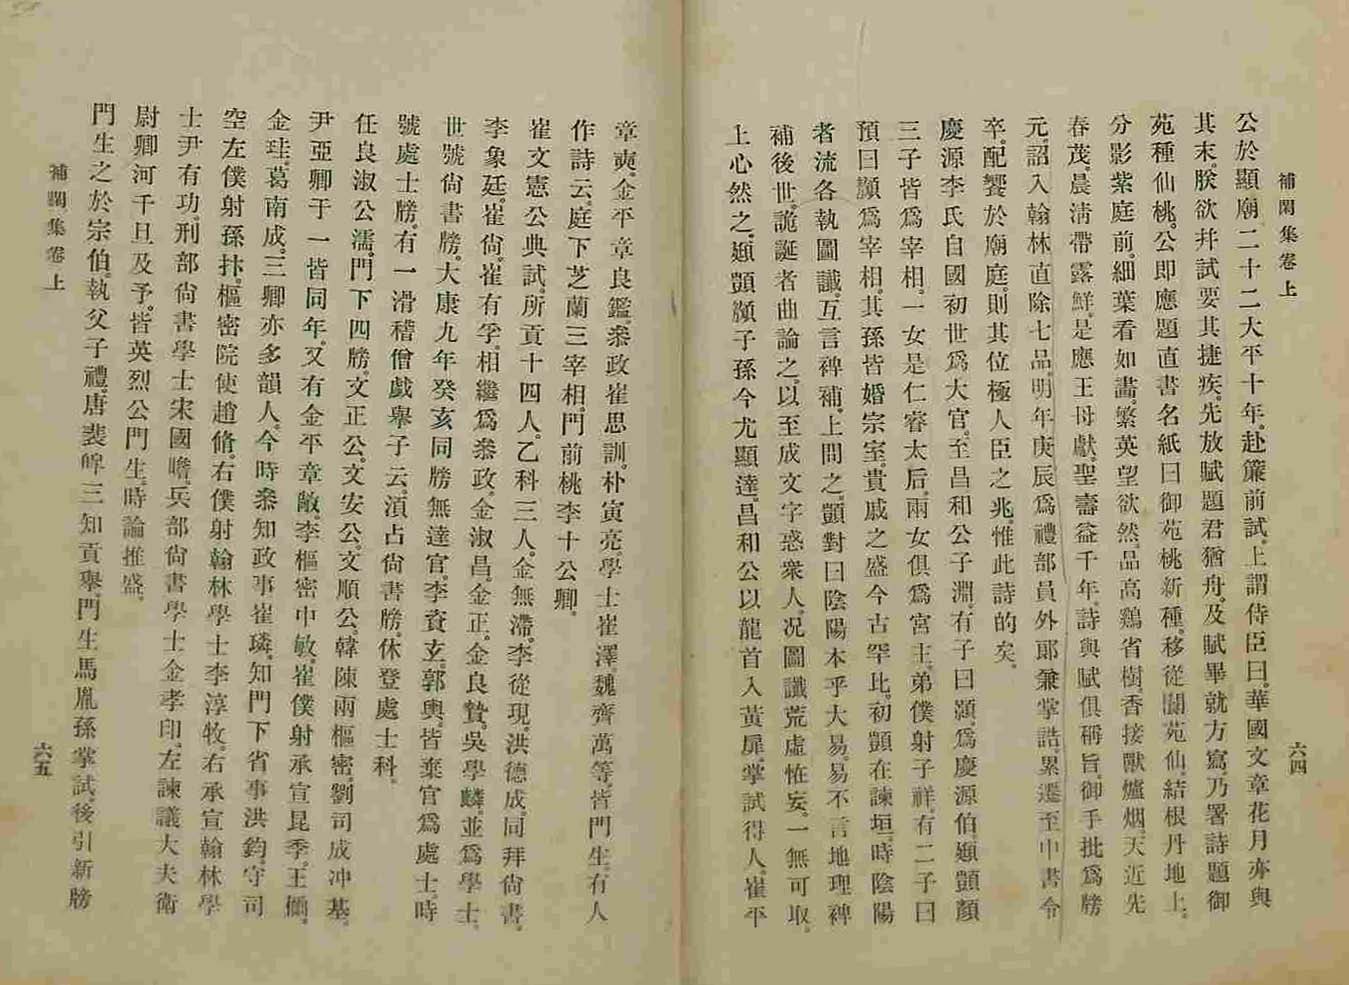 補閑集卷上
六四
公於顯廟二十二大平十年。赴簾前試。上謂侍臣曰。華國文章花月亦與
其末。朕欲幷試要其捷疾。先放賦題君猶舟。及賦畢就方寫。乃署詩題御
苑種仙桃。公卽應題直書名紙曰御苑桃新種。移從閬苑仙。結根丹地上。
分影紫庭前。細葉看如畵。繁英望欲然。品高鷄省樹。香接獸爐烟。天近先
春茂。晨淸帶露鮮。是應王母獻。聖壽益千年。詩與賦俱稱旨。御手批爲牓
元。詔入翰林直除七品。明年庚辰爲禮部員外郞兼掌誥。累遷至中書令
卒。配饗於廟庭。則其位極人臣之兆。惟此詩的矣。
慶源李氏自國初世爲大官。至昌和公子淵。有子曰顥。爲慶源伯顗顗顏
三子皆爲宰相。一女是仁睿太后。兩女俱爲宮主。弟僕射子祥。有二子曰
預曰䫨爲宰相。其孫皆婚宗室。貴戚之盛今古罕比。初顗在諫垣。時陰陽
者流各執圖讖。互言裨補。上問之。顗對曰陰陽本乎大易。易不言地理裨
補後世。詭誕者曲論之。以至成文字惑衆人。况圖讖荒虛恠妄。一無可取。
上心然之。顗顗顥子孫今尤顯達。昌和公以龍首入黃扉。掌試得人。崔平
章奭。金平章良鑑。叅政崔思訓。朴寅亮。學士崔澤。魏齊萬等。皆門生。有人
作詩云。庭下芝蘭三宰相。門前桃李十公卿。
崔文憲公典試。所貢十四人。乙科三人。金無滯。李從現。洪德成。同拜尙書。
李象廷。崔尙。崔有孚。相繼爲叅政。金淑昌。金正。金良贄。吳學麟。並爲學士。
世號尙書牓。大康九年癸亥同牓無達官。李資玄。郭輿。皆棄官爲處士。時
號處士牓。有一滑稽僧戱擧子云。湏占尙書牓。休登處士科。
任良淑公濡。門下四牓。文正公。文安公。文順公。韓陳兩樞密。劉司成冲基。
尹亞卿于一皆同年。又有金平章敞。李樞密中敏。崔僕射承宣昆季。王儞。
金珪。葛南成。三卿亦多韻人。今時叅知政事崔璘。知門下省事洪鈞。守司
空左僕射孫抃。樞密院使趙脩。右僕射翰林學士李淳牧。右承宣翰林學
士尹有功。刑部尙書學士宋國瞻。兵部尙書學士金孝印。左諫議大夫衛
尉卿河千旦及予。皆英烈公門生。時論推盛。
門生之於宗伯。執父子禮。唐裴皥三知貢擧。門生馬胤孫掌試後引新牓
補閑集卷上
六五